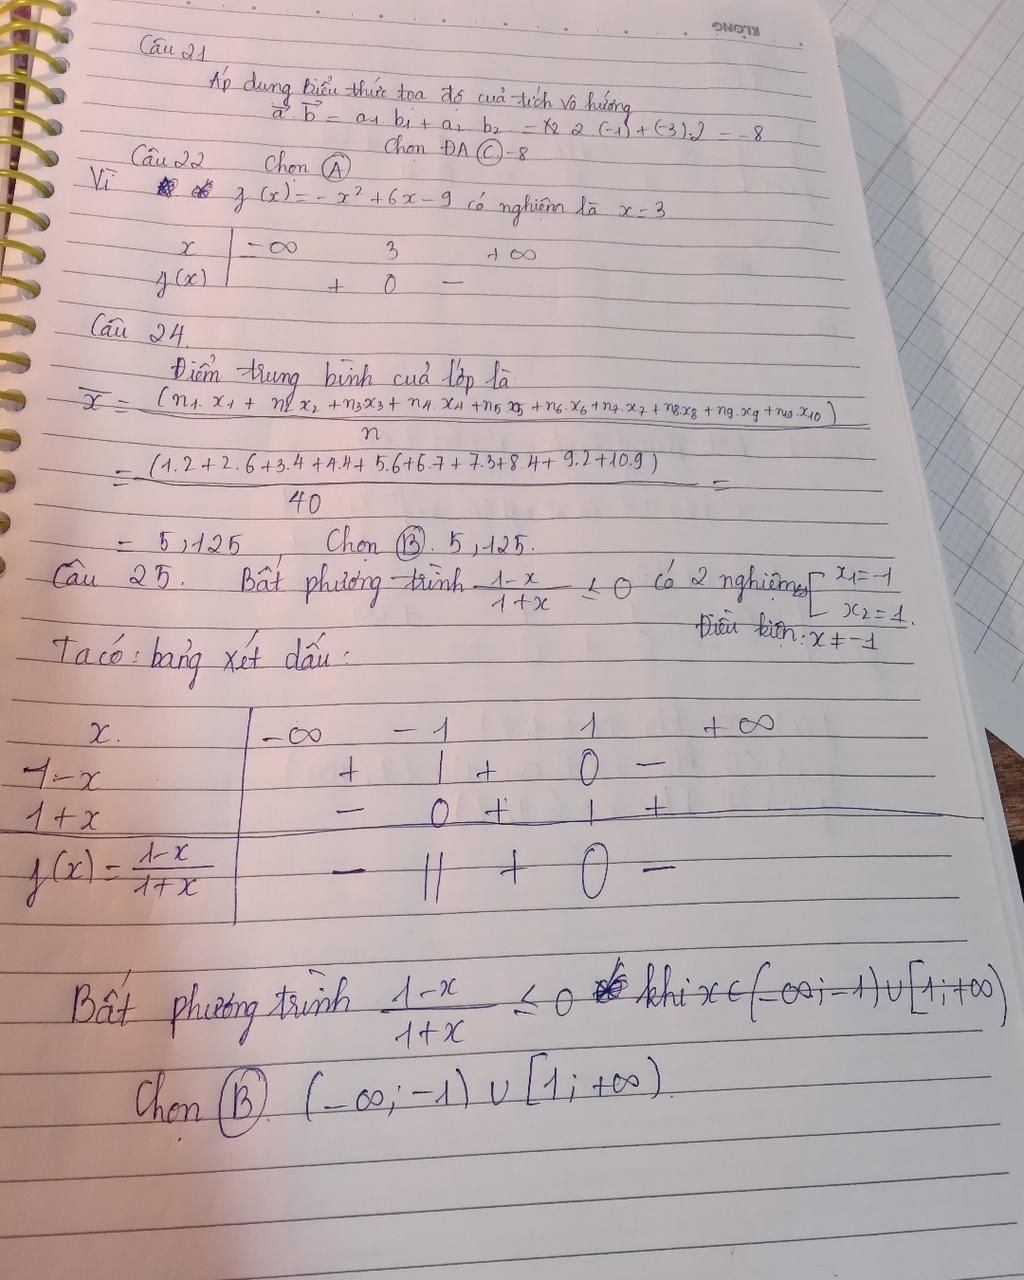 KLONG
Câu 21
Áp dụng biểu thức tọa độ của tích vô hướng
a⃗.b⃗ = a1 b1 + a2 b2 = 2 (-1) + (-3).2 = -8
Chọn ĐA C -8
Câu 22 Chọn A
Vì f(x) = - x² + 6x - 9 có nghiệm là x = 3
x -∞ 3 +∞
f(x) + 0 -
Câu 24.
Điểm trung bình cuả lớp là
x̄ = (n1.x1 + n2 x2 + n3x3 + n4.x4 + n5 x5 + n6.x6 + n7.x7 + n8.x8 + n9.x9 + n10.x10)
n
= (1.2+2.6+3.4+4.4+5.6+6.7+7.3+8.4+9.2+10.9) =
40
= 5,125 Chọn B. 5,125.
Câu 25. Bất phương trình 1-x / 1+x ≤ 0 có 2 nghiệm [ x1=-1
x2=1.
Điều kiện: x ≠ -1
Ta có: bảng xét dấu:
x. -∞ -1 1 +∞
1-x + | + 0 -
1+x - 0 + | +
f(x) = 1-x / 1+x - || + 0 -
Bất phương trình 1-x / 1+x ≤ 0 khi x ∈ (-∞; -1) ∪ [1; +∞)
Chọn B (-∞; -1) ∪ [1; +∞)